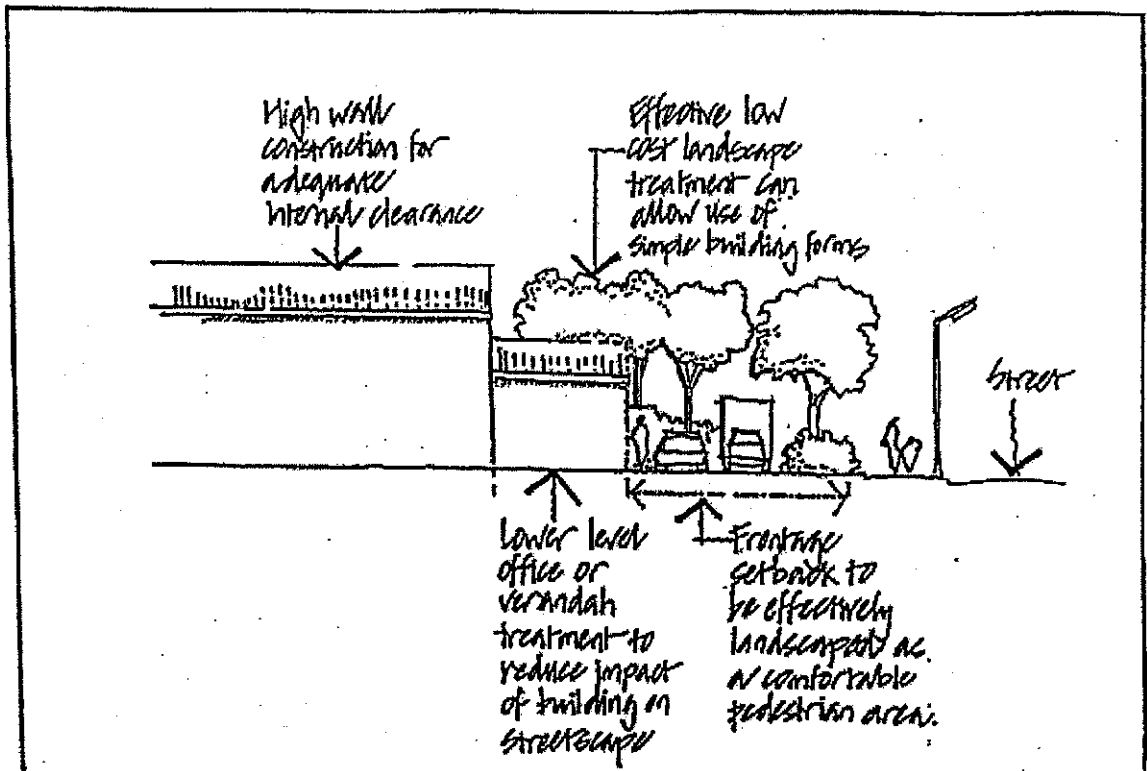 High wall
construction for
adequate
internal clearance
Effective low
cost landscape
treatment can
allow use of
simple building forms
Street
Lower level
office or
verandah
treatment to
reduce impact
of building on
streetscape
Frontage
setback to
be effectively
landscaped as
a comfortable
pedestrian area.